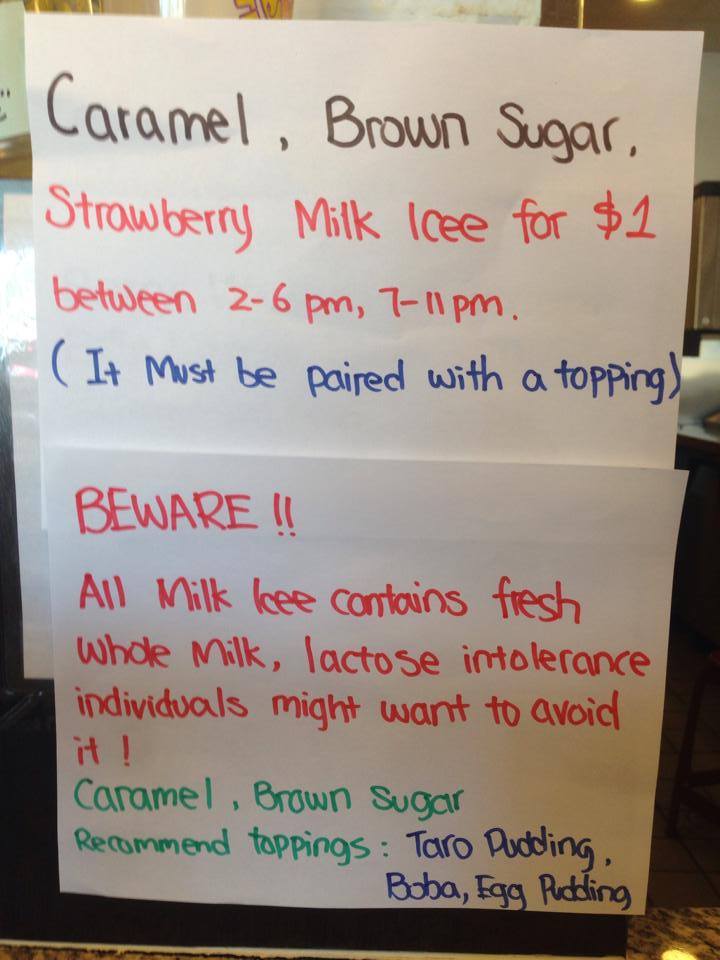 Caramel , Brown Sugar,
Strawberry Milk Icee for $1
between 2-6 pm, 7-11 pm.
( It Must be paired with a topping)
BEWARE !!
All Milk Icee contains fresh
Whole Milk, lactose intolerance
individuals might want to avoid
it !
Caramel , Brown Sugar
Recommend toppings : Taro Pudding,
Boba, Egg Pudding